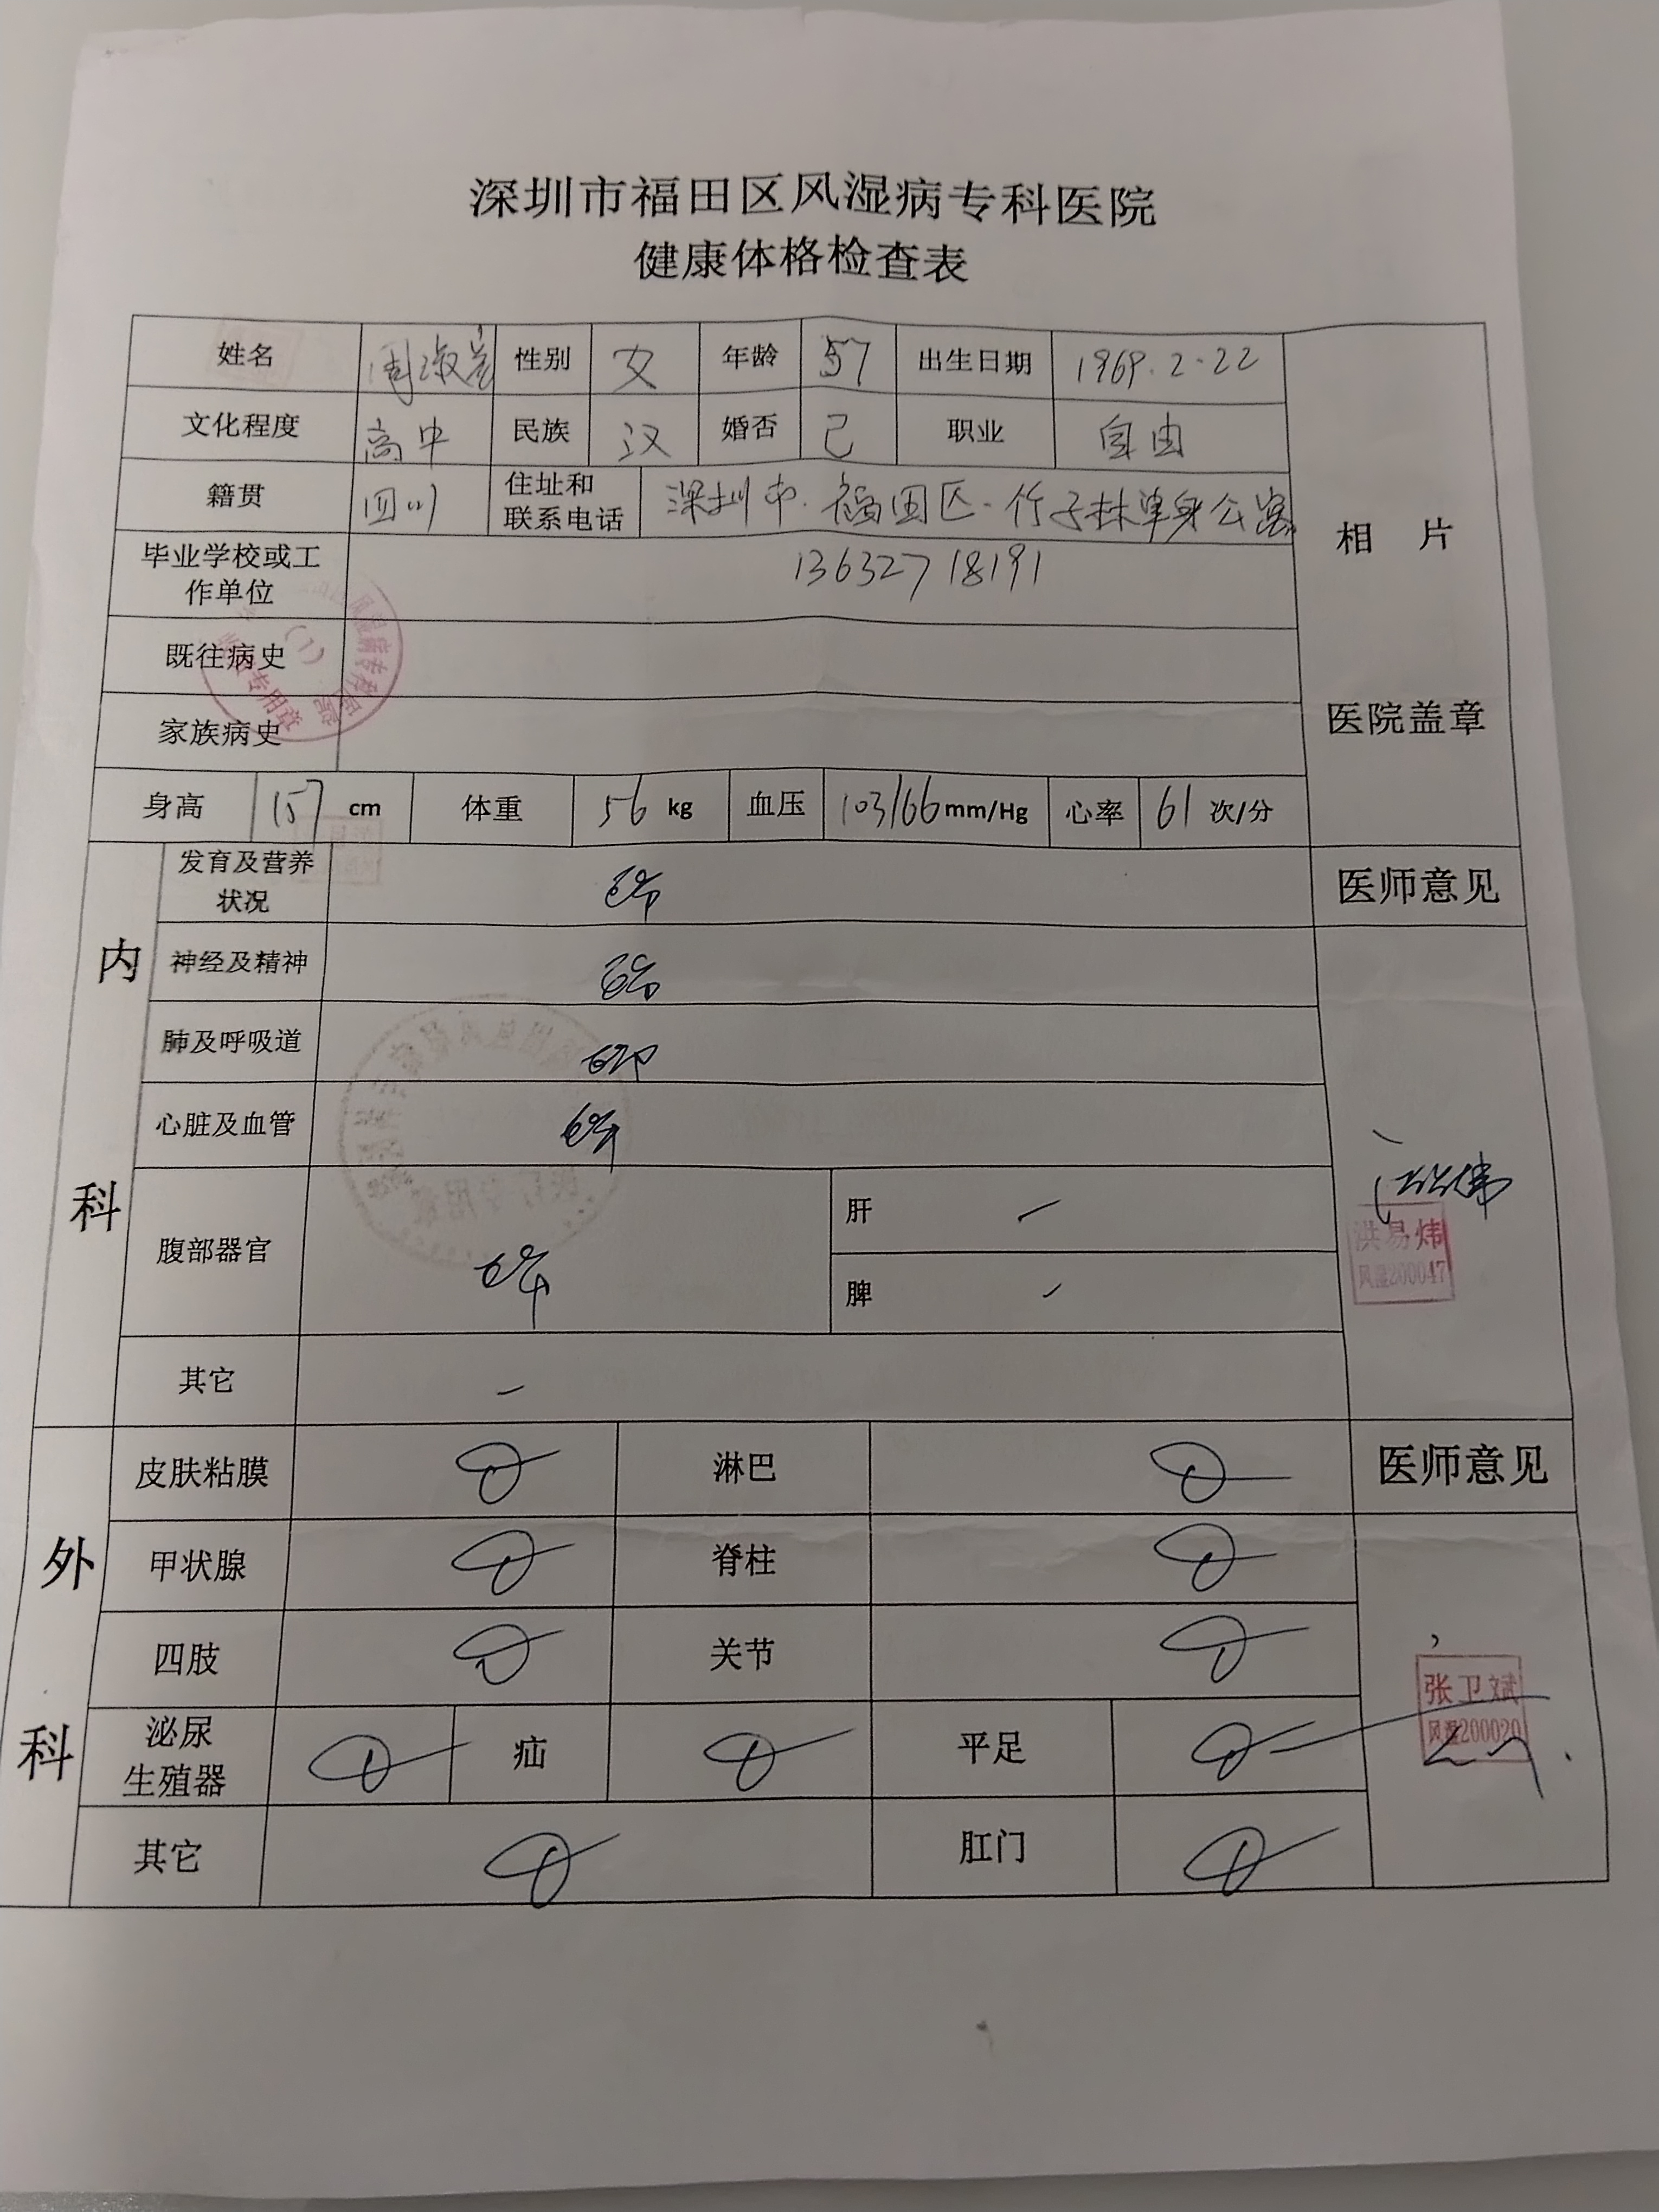 深圳市福田区风湿病专科医院
健康体格检查表
姓名 周淑 性别 女 年龄 57 出生日期 1969.2.22
文化程度 高中 民族 汉 婚否 已 职业 自由
籍贯 四川 住址和联系电话 深圳市.福田区.竹子林单身公寓
相 片
毕业学校或工作单位 13632718191
既往病史
家族病史
医院盖章
身高 157 cm 体重 56 kg 血压 103/66 mm/Hg 心率 61 次/分
内科
发育及营养状况
医师意见
神经及精神
肺及呼吸道
心脏及血管
腹部器官
肝 —
脾 —
其它 —
洪易炜
风湿200047
外科
皮肤粘膜 淋巴
医师意见
甲状腺 脊柱
四肢 关节
泌尿生殖器 疝 平足
其它 肛门
张卫斌
风湿200020
专用章